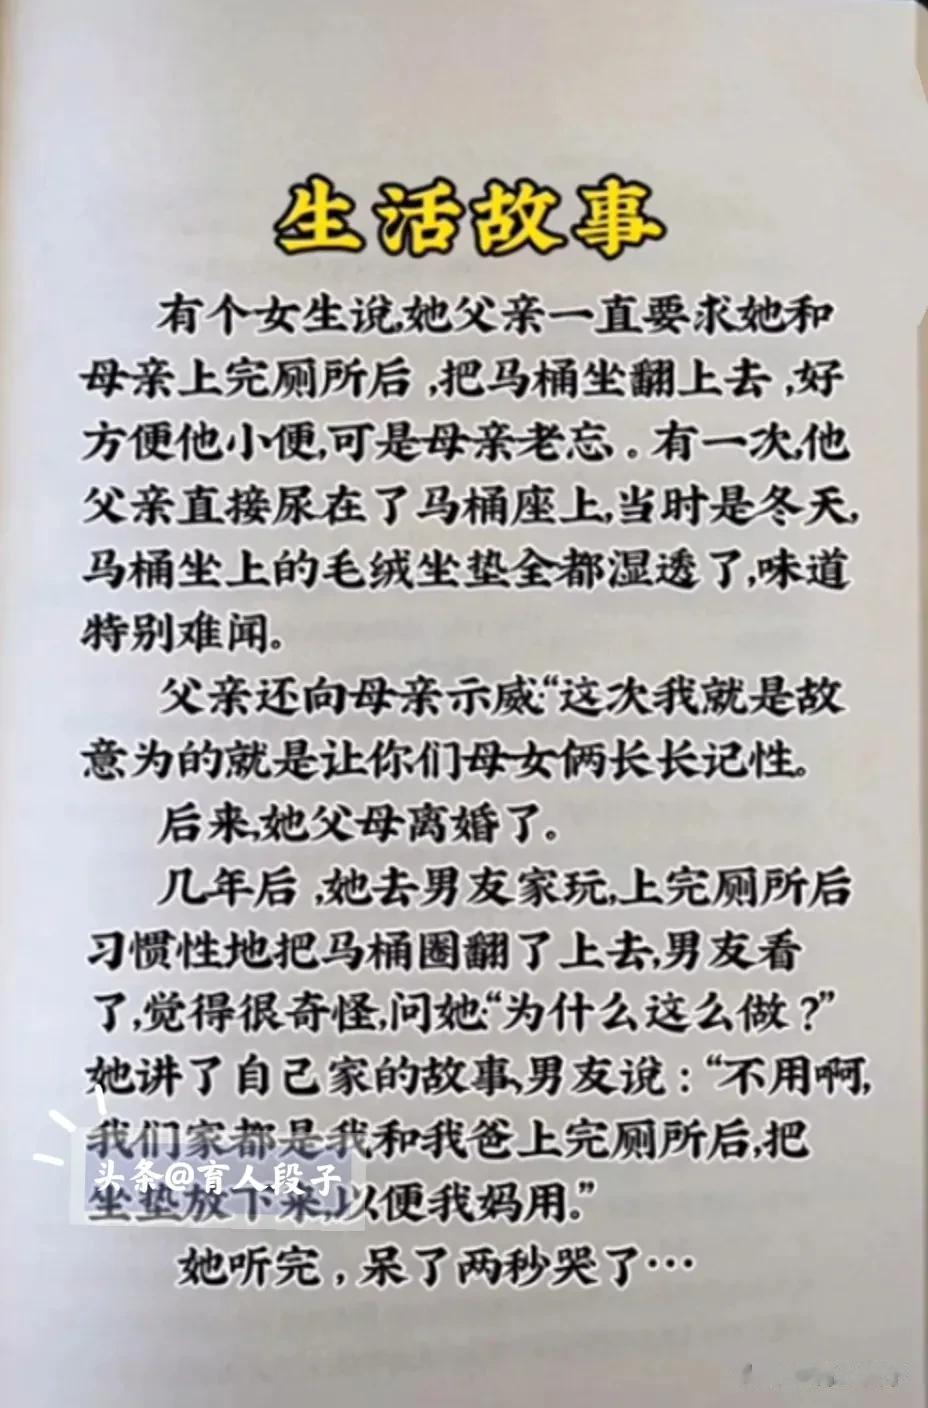 生活故事
有个女生说,她父亲一直要求她和
母亲上完厕所后,把马桶坐翻上去,好
方便他小便,可是母亲老忘。有一次,他
父亲直接尿在了马桶座上,当时是冬天,
马桶坐上的毛绒坐垫全都湿透了,味道
特别难闻。
父亲还向母亲示威:“这次我就是故
意为的就是让你们母女俩长长记性。
后来,她父母离婚了。
几年后,她去男友家玩,上完厕所后
习惯性地把马桶圈翻了上去,男友看
了,觉得很奇怪,问她:“为什么这么做?”
她讲了自己家的故事,男友说:“不用啊,
我们家都是我和我爸上完厕所后,把
坐垫放下来,以便我妈用。”
头条@育人段子
她听完,呆了两秒哭了…